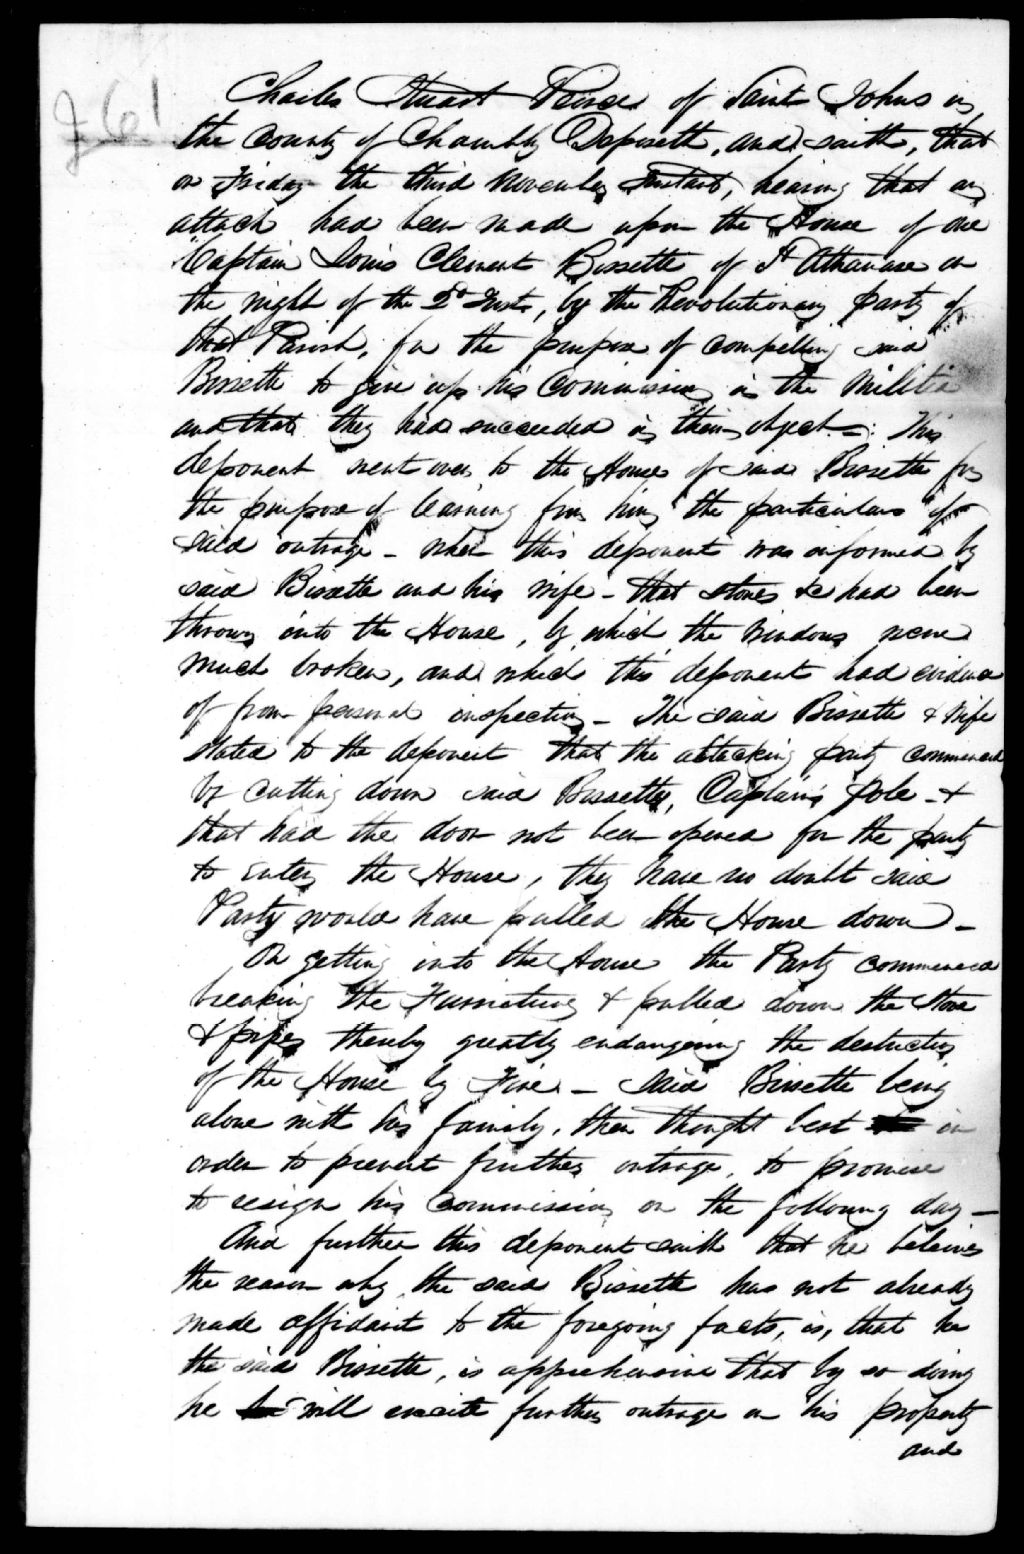 261
Charles Stuart Peirce of Saint Johns in
the County of Chambly Deposeth, and saith, that
on Friday the third November Instant, hearing that an
attack had been made upon the House of one
Captain Louis Clement Bissette of St Athanase on
the night of the 2d Inst, by the Revolutionary party of
that Parish, for the purpose of compelling said
Bissette to give up his Commission in the Militia
and that they had succeeded in their object -: This
deponent went over to the House of said Bissette for
the purpose of learning from him the particulars of
said outrage - when this deponent was informed by
said Bissette and his wife - that stones &c had been
thrown into the House, by which the windows were
much broken, and which this deponent had evidence
of from personal inspection - The said Bissette & Wife
stated to the deponent that the attacking party commenced
by cutting down said Bissette, Captain's pole - &
that had the door not been opened for the party
to enter the House, they have no doubt said
Party would have pulled the House down -
On getting into the House the Party commenced
breaking the Furniture & pulled down the Stove
& pipes thereby greatly endangering the destruction
of the House by Fire - Said Bissette being
alone with his family, then thought best in
order to prevent further outrage, to promise
to resign his Commission on the following day -
And further this deponent saith that he beleives
the reason why the said Bissette has not already
made affidavit to the foregoing facts, is, that he
the said Bissette, is apprehensive that by so doing
he will excite further outrage on his property
and